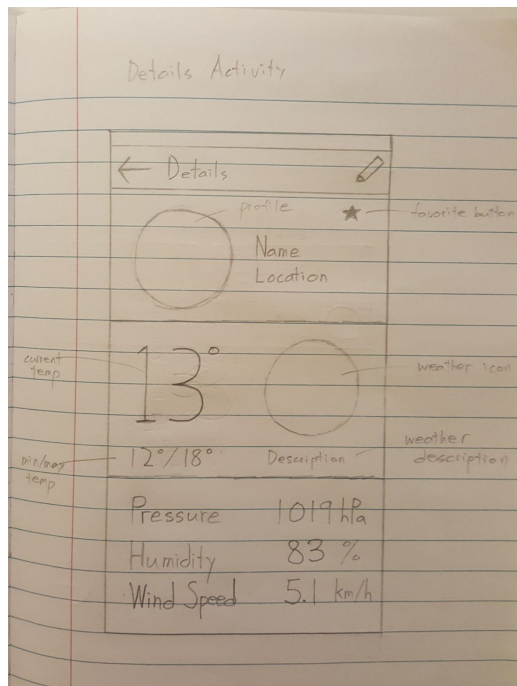 Details Activity
← Details
profile
favorite button
Name
Location
13°
current
temp
weather icon
12°/18°
min/max
temp
Description
weather
description
Pressure 1019 hPa
Humidity 83 %
Wind Speed 5.1 km/h